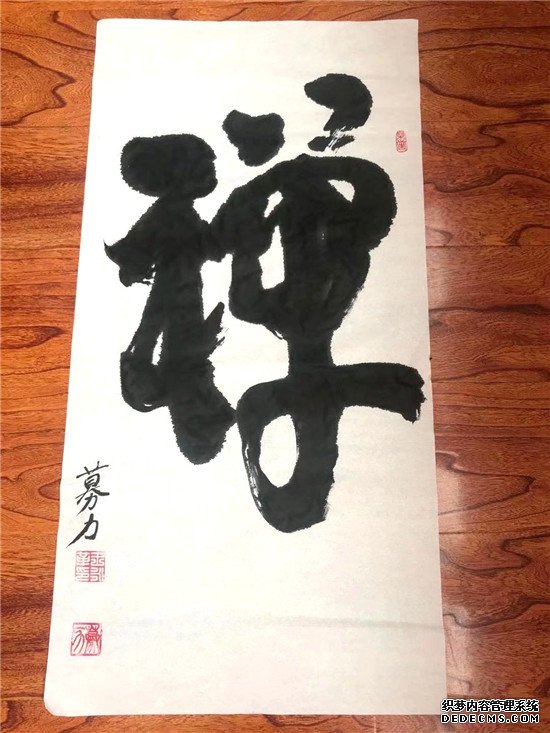 禅
募力
织梦内容管理系统
DEDECMS.COM